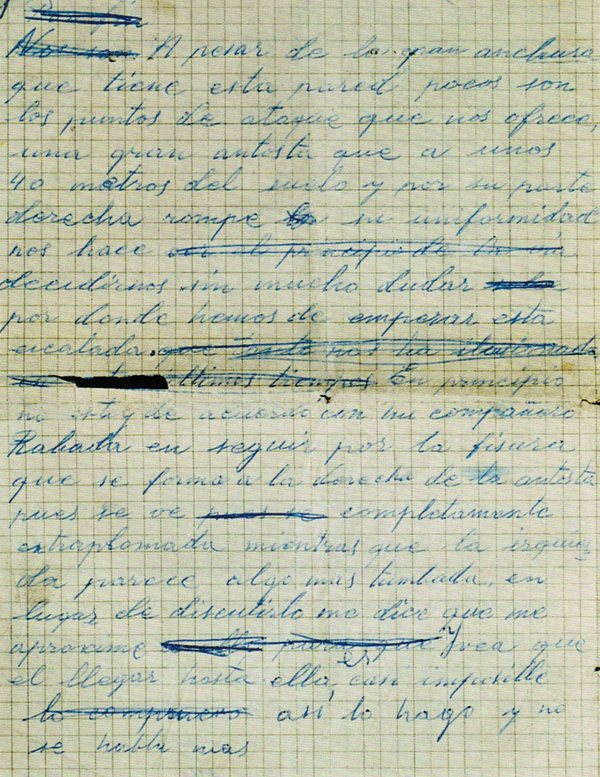 A pesar de la gran anchura
que tiene esta pared pocos son
los puntos de ataque que nos ofrece,
una gran antosta que a unos
40 metros del suelo y por su parte
derecha rompe su uniformidad
nos hace ver al principio de la via
decidirnos sin mucho dudar
por donde hemos de emperar esta
escalada. que tanto nos ha ilusionado
ultimos tiempos En principio
no estoy de acuerdo con mi compañero
Rabada en seguir por la fisura
que se forma a la derecha de la antosta
pues se ve pues se completamente
extraplomada mientras que la izquier
da parece algo mas tumbada, en
lugar de discutirlo me dice que me
aproxime para que y vea que
el llegar hasta ella, es casi imposible
lo compruevo así lo hago y no
se habla mas